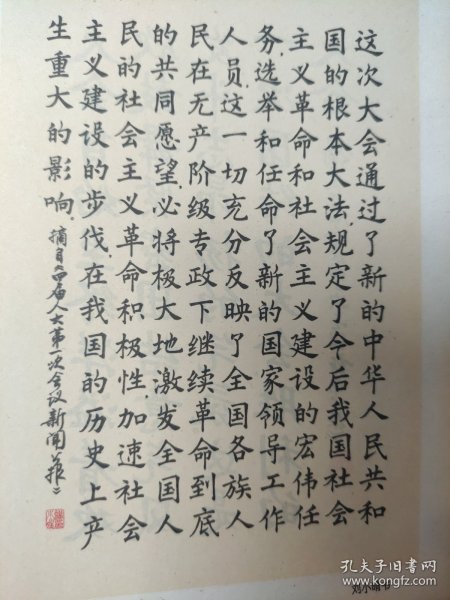 这次大会通过了新的中华人民共和
国的根本大法,规定了今后我国社会
主义革命和社会主义建设的宏伟任
务,选举和任命了新的国家领导工作
人员,这一切充分反映了全国各族人
民在无产阶级专政下继续革命到底
的共同愿望,必将极大地激发全国人
民的社会主义革命积极性,加速社会
主义建设的步伐,在我国的历史上产
生重大的影响.
摘自四届人大第一次会议新闻公报
刘小晴书
孔夫子旧书网
book.kongfz.com